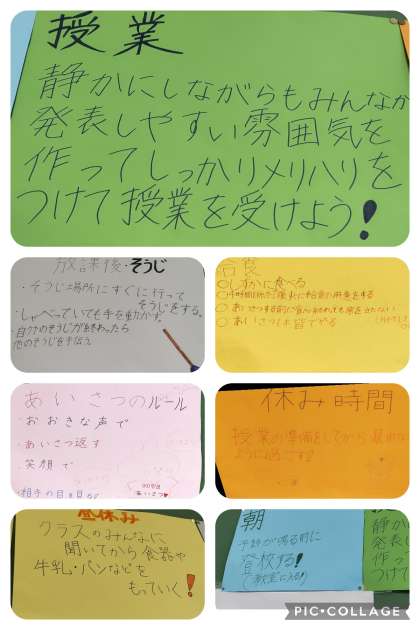 授業
静かにしながらもみんなが
発表しやすい雰囲気を
作ってしっかりメリハリを
つけて授業を受けよう!
放課後・そうじ
・そうじ場所にすぐに行って
そうじをする。
・しゃべっていても手を動かす。
・自分のそうじが終わったら
他のそうじを手伝う
給食
○しずかに食べる
○あいさつは皆でやる
あいさつのルール
・おおきな声で
・あいさつ返す
・笑顔で
・相手の目を見る
休み時間
授業の準備をしてから
ように過ごす
昼休み
クラスのみんなに
聞いてから食器や
牛乳・パンなどを
もっていく!
朝
予鈴が鳴る前に
登校する!
静か
発表し
作って
つけて
PIC•COLLAGE